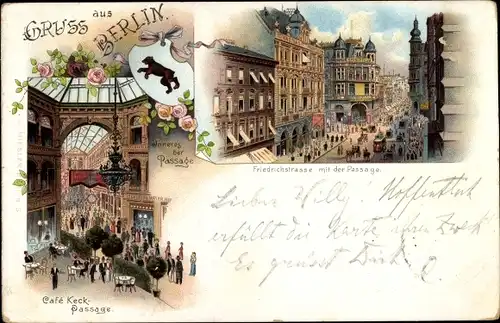 GRUSS aus
BERLIN.
Inneres
der
Passage
Friedrichstrasse mit der Passage.
Lieber Willy. Hoffentlich
erfüllt die Karte ihren Zweck
Es grüsst Dich
Café Keck-
Passage.